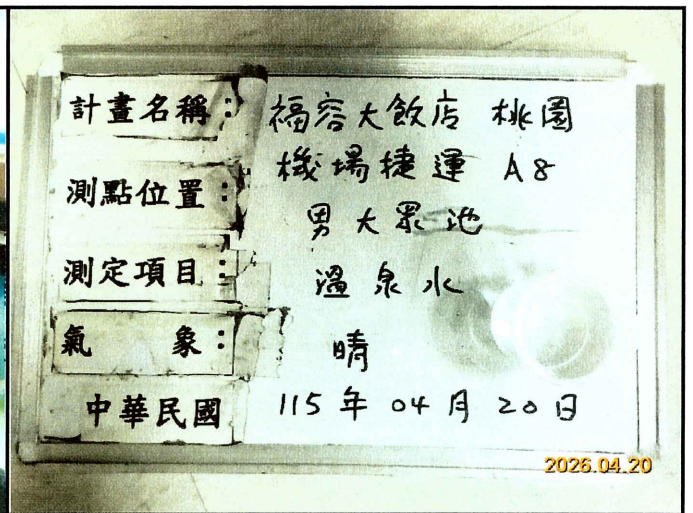 計畫名稱：福容大飯店 桃園
機場捷運 A8
測點位置：男大眾池
測定項目：溫泉水
氣 象：晴
中華民國 115年04月20日
2026.04.20